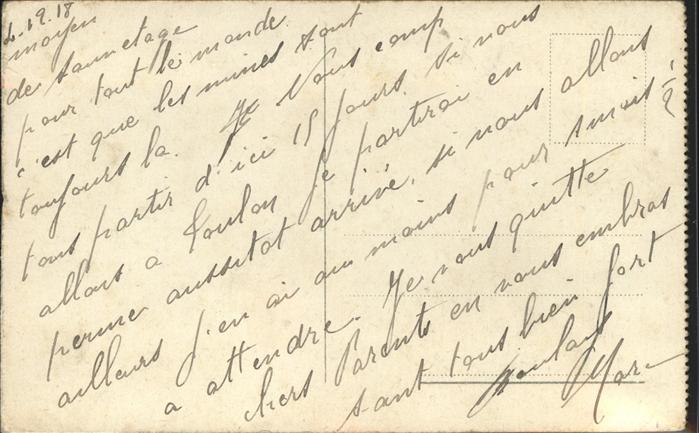 2.19.18
moyen
de sauvetage
pour tout le monde
c'est que les mines sont
toujours la. Je vous comp
tons partir d'ici 15 jours si nous
allons a Toulon je partirai en
perme aussitot arrivé, si nous allons
ailleurs j'en ai au moins pour 2 mois
a attendre. Je vous quitte
chers Parents en vous embras
sant tous bien fort
Marc